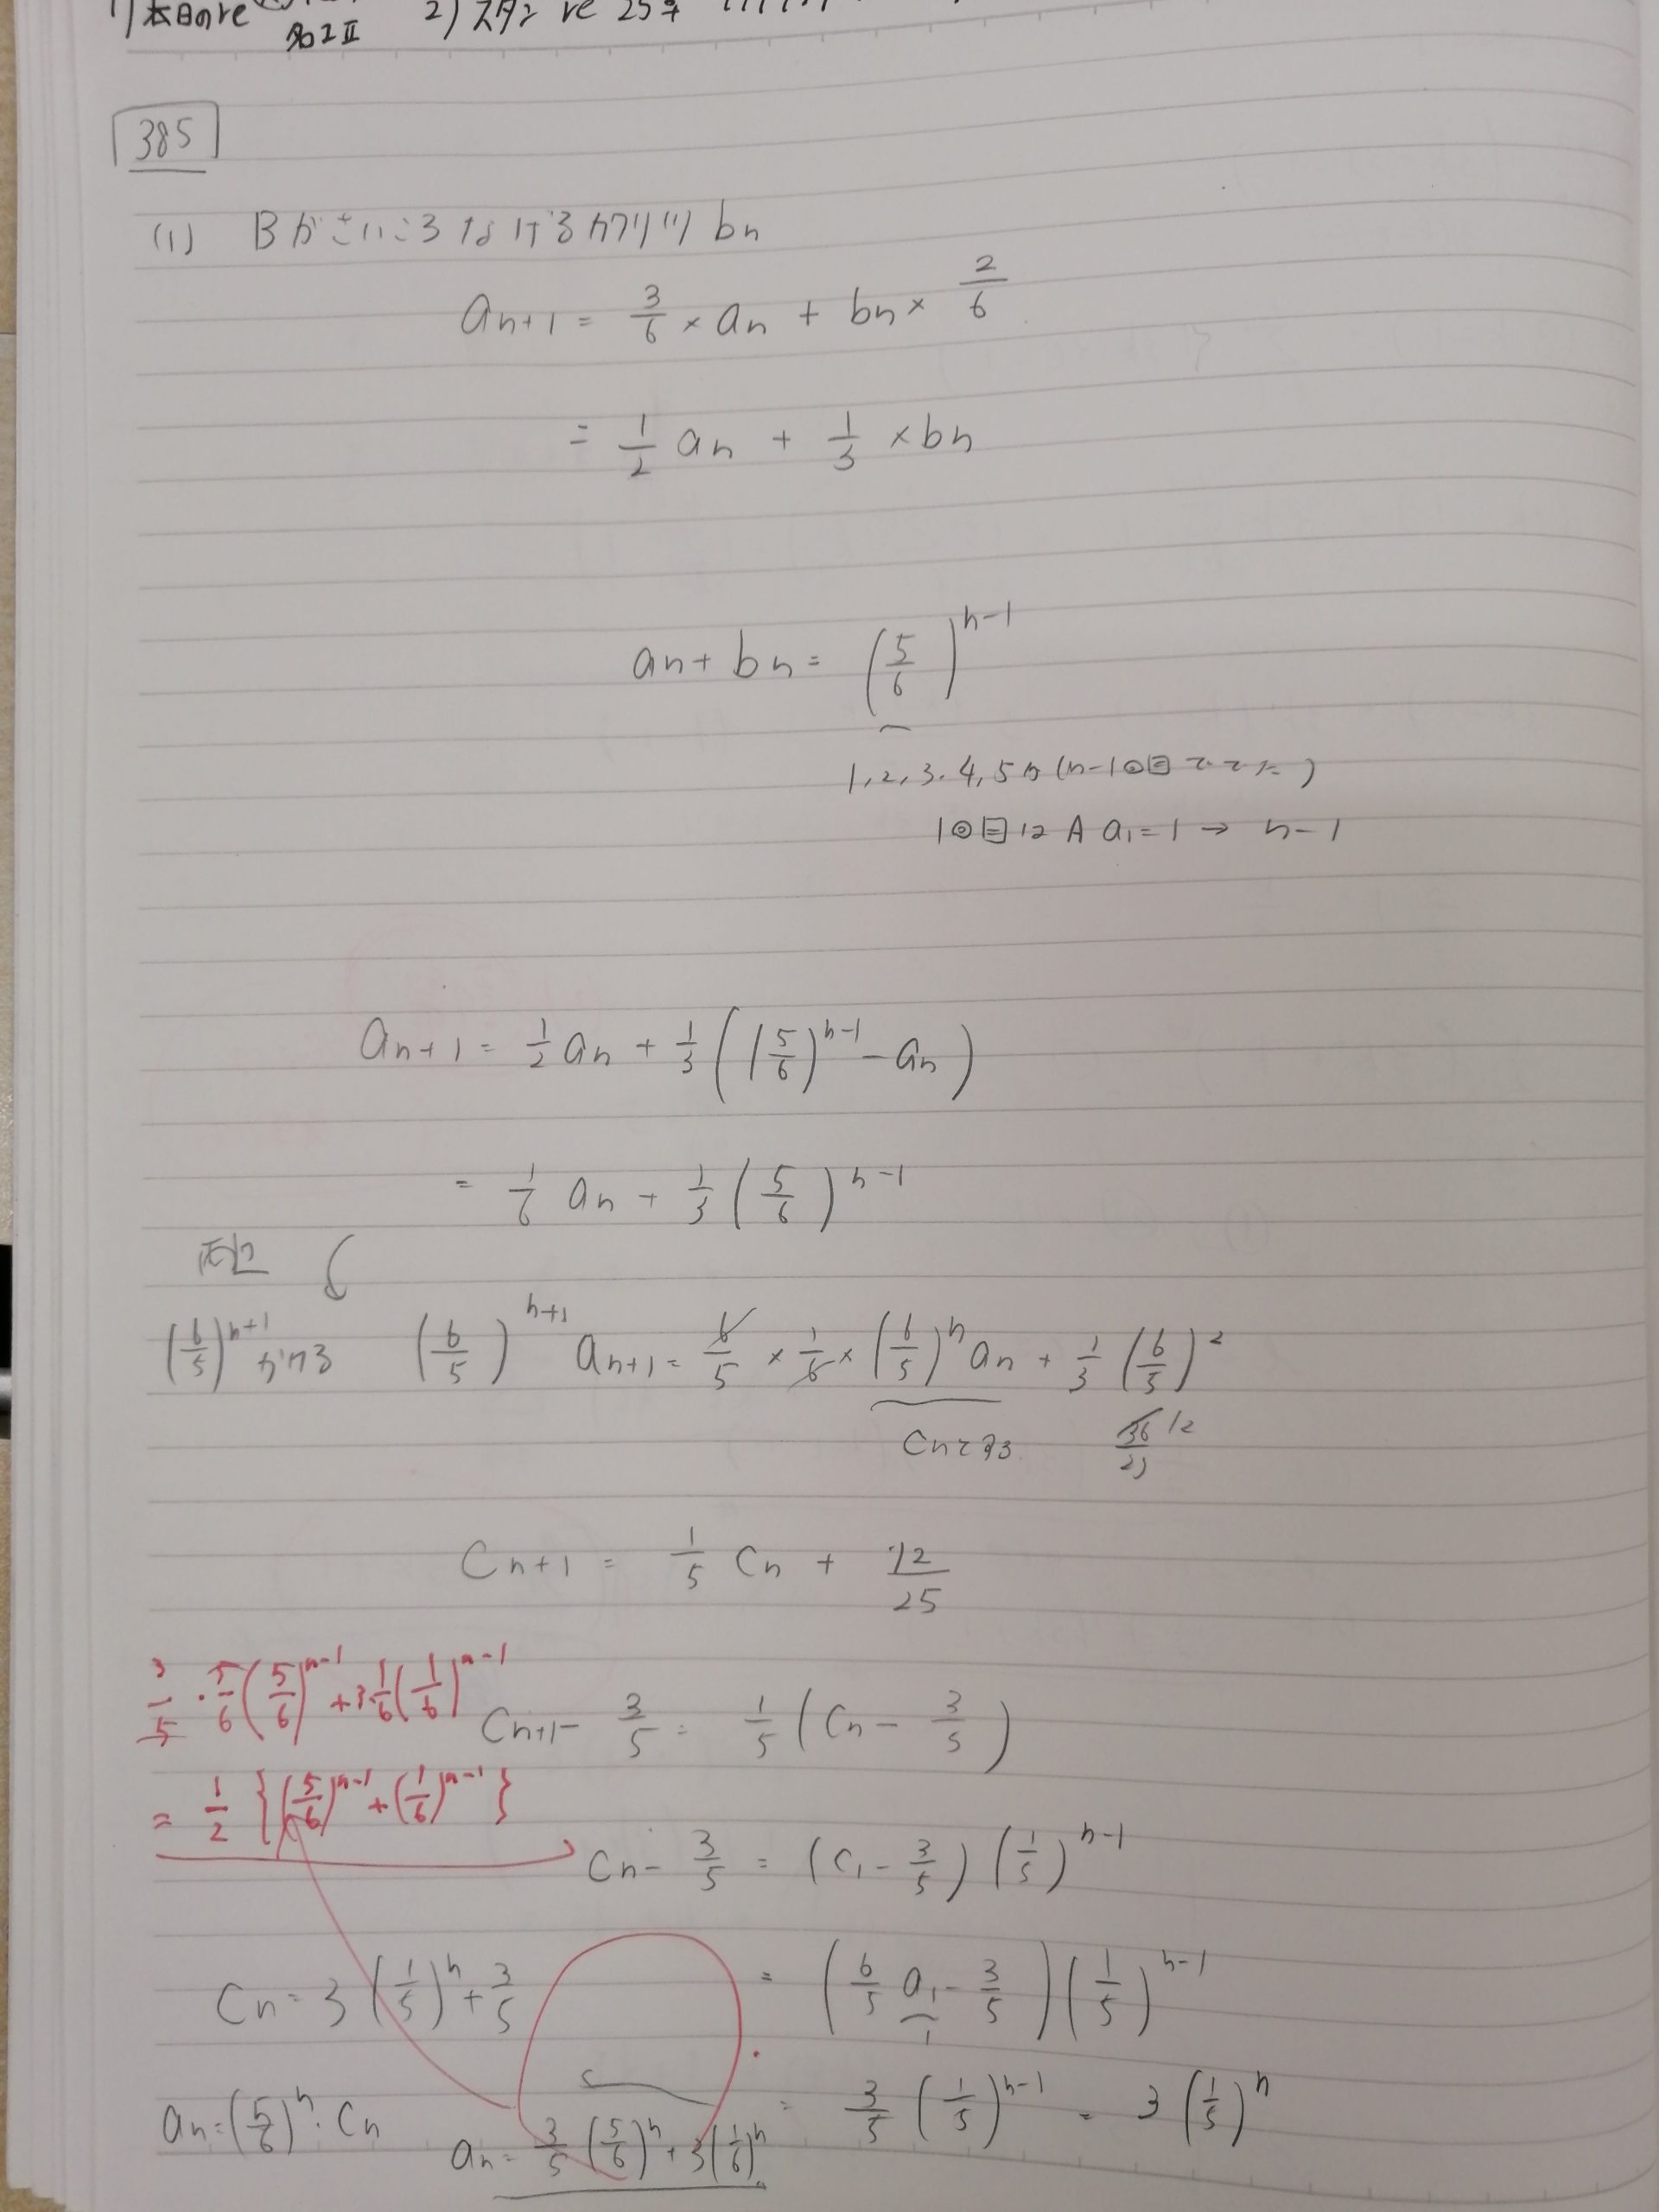 1) 本日のre
2) スタンre 25
385
(1) Bがさいころなげるカクリツ bn
an+1 = 3/6 × an + bn × 2/6
= 1/2 an + 1/3 × bn
an + bn = (5/6)^n-1
1,2,3.4,5が(n-1回目ででた)
1回目はA a1=1 → n-1
an+1 = 1/2 an + 1/3 ((5/6)^n-1 - an)
= 1/6 an + 1/3 (5/6)^n-1
両辺
(6/5)^n+1 かける (6/5)^n+1 an+1 = 6/5 × 1/6 × (6/5)^n an + 1/3 (6/5)^2
Cnとする 36/25 12
Cn+1 = 1/5 Cn + 12/25
3/5 · 5/6 (5/6)^n-1 + 3 1/6 (1/6)^n-1
Cn+1 - 3/5 = 1/5 (Cn - 3/5)
= 1/2 {(5/6)^n-1 + (1/6)^n-1}
Cn - 3/5 = (C1 - 3/5) (1/5)^n-1
Cn = 3 (1/5)^n + 3/5 = (6/5 a1 - 3/5) (1/5)^n-1
1
an = (5/6)^n · Cn an = 3/5 (5/6)^n + 3 (1/6)^n = 3/5 (1/5)^n-1 = 3 (1/5)^n